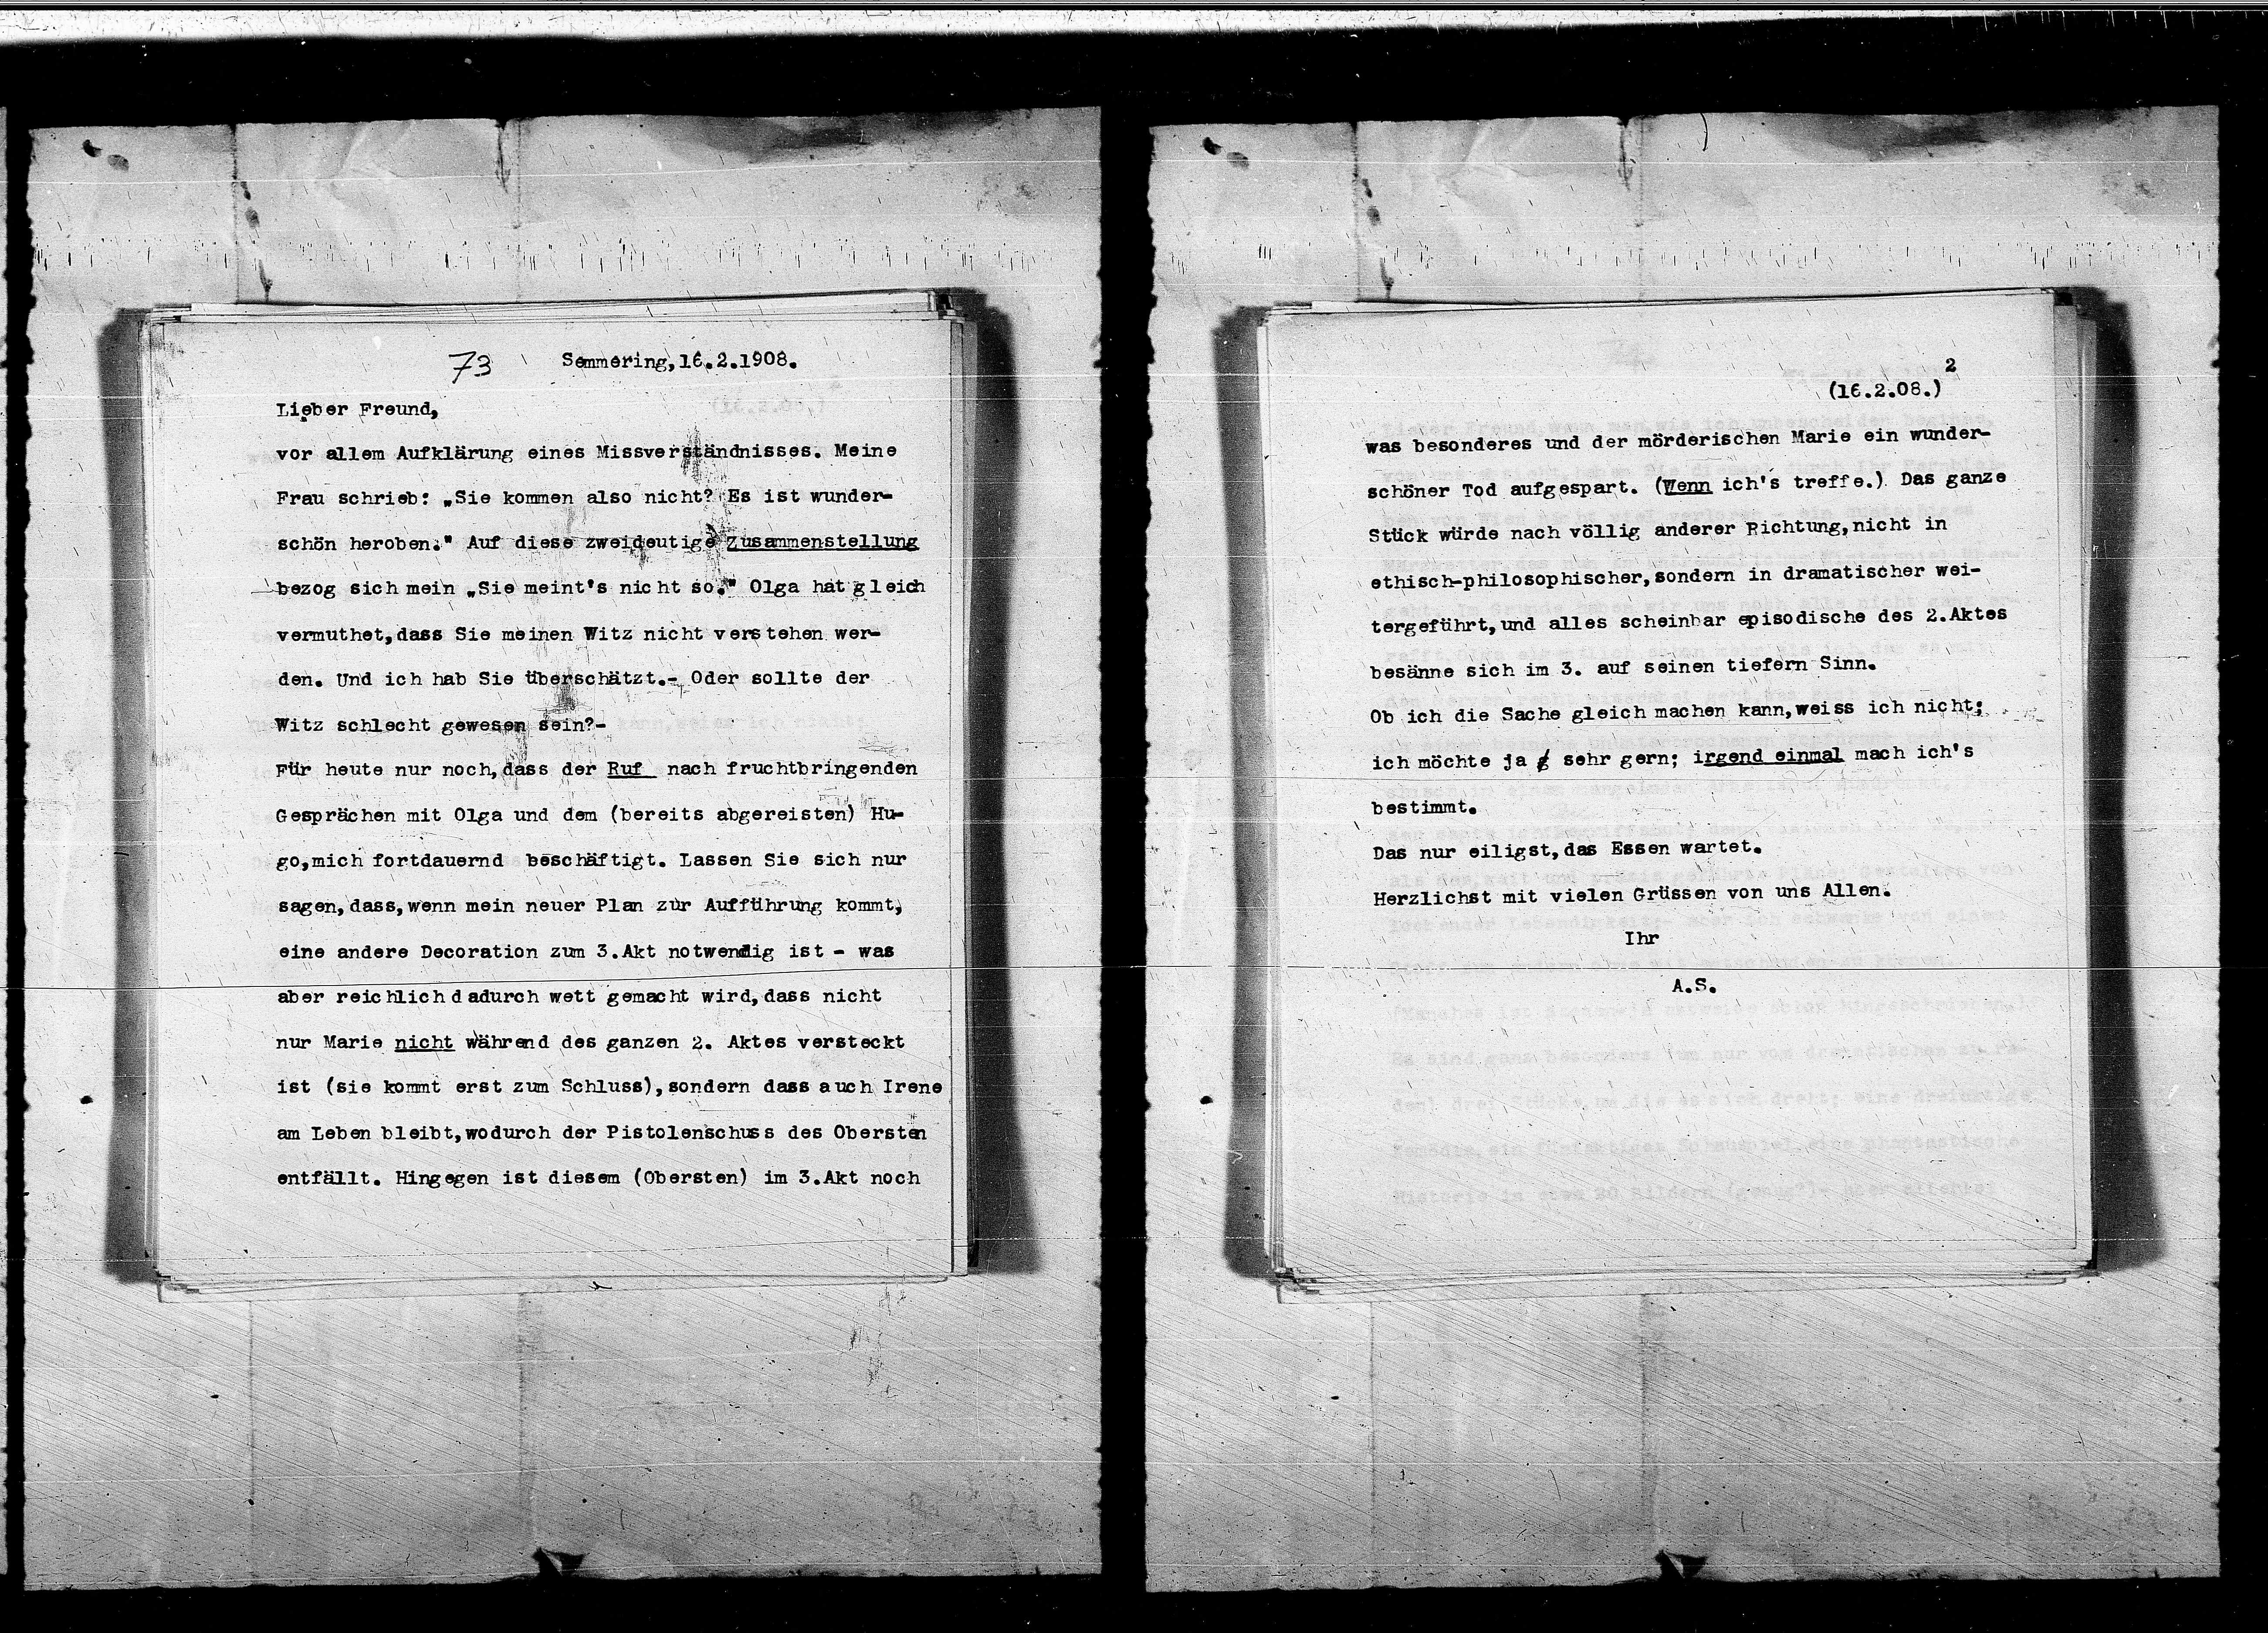 73 Semmering,16.2.1908.
Lieber Freund,
vor allem Aufklärung eines Missverständnisses. Meine
Frau schrieb: „Sie kommen also nicht? Es ist wunder-
schön heroben." Auf diese zweideutige Zusammenstellung
bezog sich mein „Sie meint's nicht so." Olga hat gleich
vermuthet,dass Sie meinen Witz nicht verstehen wer-
den. Und ich hab Sie überschätzt.- Oder sollte der
Witz schlecht gewesen sein?-
Für heute nur noch,dass der Ruf nach fruchtbringenden
Gesprächen mit Olga und dem (bereits abgereisten) Hu-
go,mich fortdauernd beschäftigt. Lassen Sie sich nur
sagen,dass,wenn mein neuer Plan zur Aufführung kommt,
eine andere Decoration zum 3.Akt notwendig ist - was
aber reichlich dadurch wett gemacht wird,dass nicht
nur Marie nicht während des ganzen 2. Aktes versteckt
ist (sie kommt erst zum Schluss),sondern dass auch Irene
am Leben bleibt,wodurch der Pistolenschuss des Obersten
entfällt. Hingegen ist diesem (Obersten) im 3.Akt noch
2
(16.2.08.)
was besonderes und der mörderischen Marie ein wunder-
schöner Tod aufgespart. (Wenn ich's treffe.) Das ganze
Stück würde nach völlig anderer Richtung,nicht in
ethisch-philosophischer,sondern in dramatischer wei-
tergeführt,und alles scheinbar episodische des 2.Aktes
besänne sich im 3. auf seinen tiefern Sinn.
Ob ich die Sache gleich machen kann,weiss ich nicht;
ich möchte ja sehr gern; irgend einmal mach ich's
bestimmt.
Das nur eiligst,das Essen wartet.
Herzlichst mit vielen Grüssen von uns Allen.
Ihr
A.S.